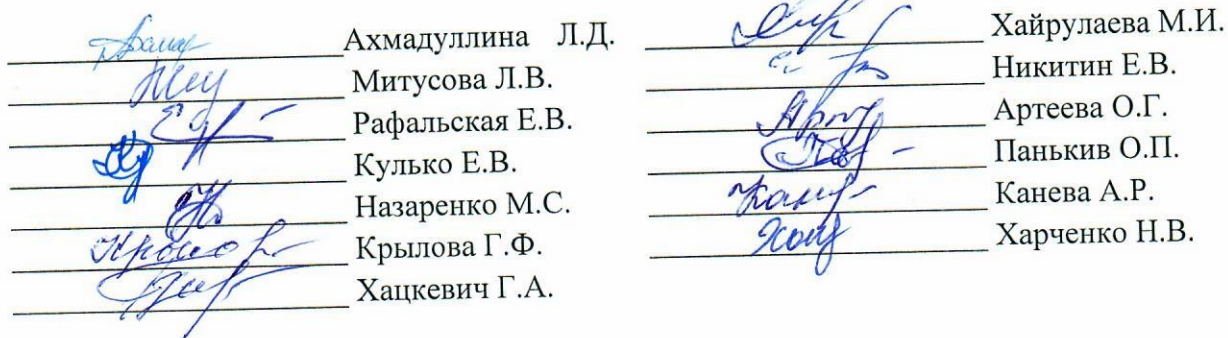 Ахмадуллина Л.Д.
Митусова Л.В.
Рафальская Е.В.
Кулько Е.В.
Назаренко М.С.
Крылова Г.Ф.
Хацкевич Г.А.
Хайрулаева М.И.
Никитин Е.В.
Артеева О.Г.
Панькив О.П.
Канева А.Р.
Харченко Н.В.